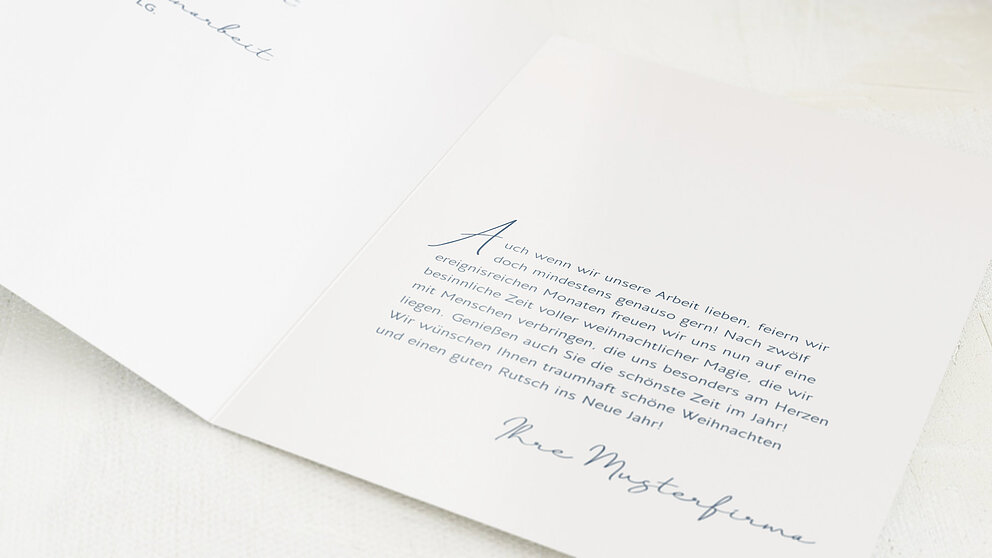 arbeit
Auch wenn wir unsere Arbeit lieben, feiern wir
doch mindestens genauso gern! Nach zwölf
ereignisreichen Monaten freuen wir uns nun auf eine
besinnliche Zeit voller weihnachtlicher Magie, die wir
mit Menschen verbringen, die uns besonders am Herzen
liegen. Genießen auch Sie die schönste Zeit im Jahr!
Wir wünschen Ihnen traumhaft schöne Weihnachten
und einen guten Rutsch ins Neue Jahr!
Ihre Musterfirma